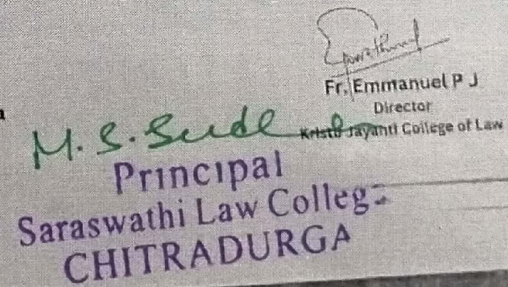 Fr. Emmanuel P J
Director
Kristu Jayanti College of Law
M. S.
Principal
Saraswathi Law College
CHITRADURGA